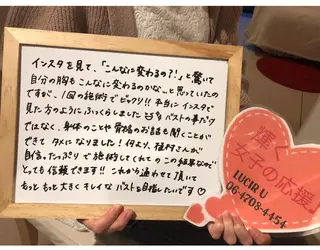 インスタを見て、「こんなに変わるの?!」と驚いて
自分の胸もこんなに変わるのかな…と思っていたの
ですが、1回の施術でビックリ!! 本当にインスタで
見た方のようにふっくらしました バストの事だけ
ではなく、身体のことや骨格のお話も聞くことが
できて タメになりました! 何より、植村さんが
自信たっぷりで施術してくれて この結果なので
とっても信頼できます!! これから通わせて頂いて
もっともっと大きくキレイなバストを目指したいです♡
輝く
女子の応援!
LUCIR U
06-4708-4454